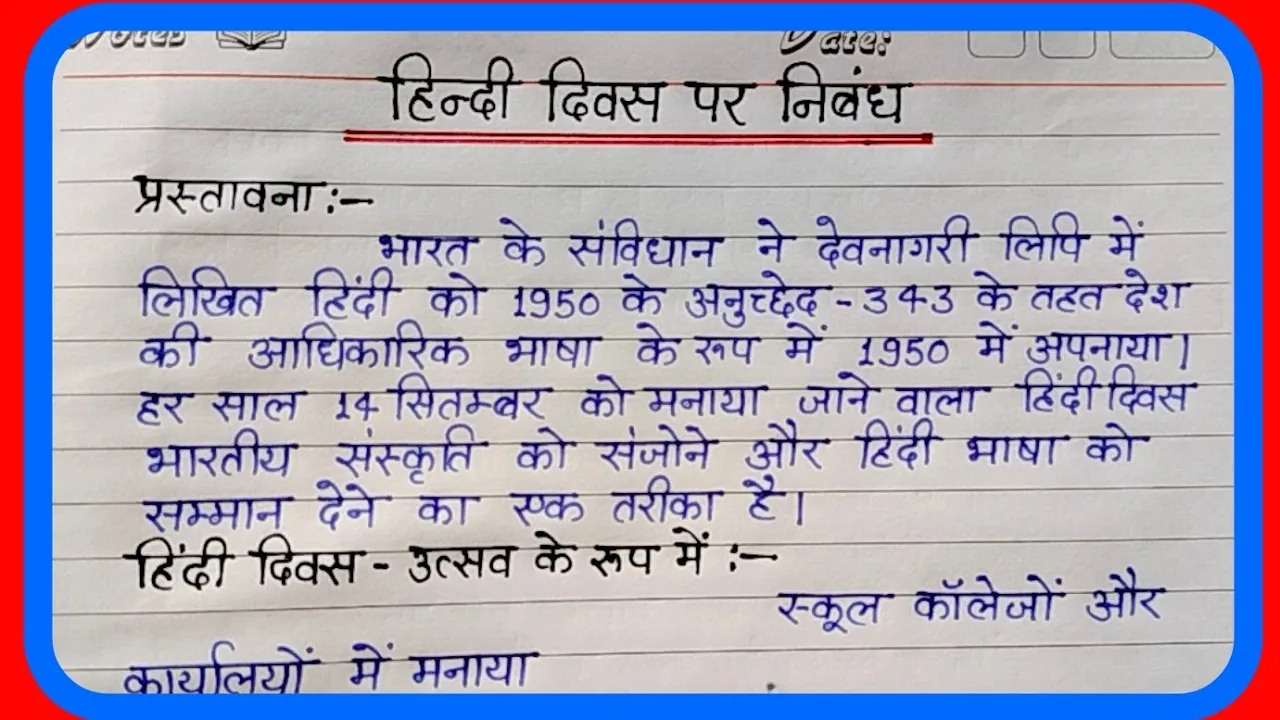 Notes Date:
हिन्दी दिवस पर निबंध
प्रस्तावना :-
भारत के संविधान ने देवनागरी लिपि में
लिखित हिंदी को 1950 के अनुच्छेद - 343 के तहत देश
की आधिकारिक भाषा के रूप में 1950 में अपनाया।
हर साल 14 सितम्बर को मनाया जाने वाला हिंदी दिवस
भारतीय संस्कृति को संजोने और हिंदी भाषा को
सम्मान देने का एक तरीका है।
हिंदी दिवस - उत्सव के रूप में :-
स्कूल कॉलेजों और
कार्यालयों में मनाया